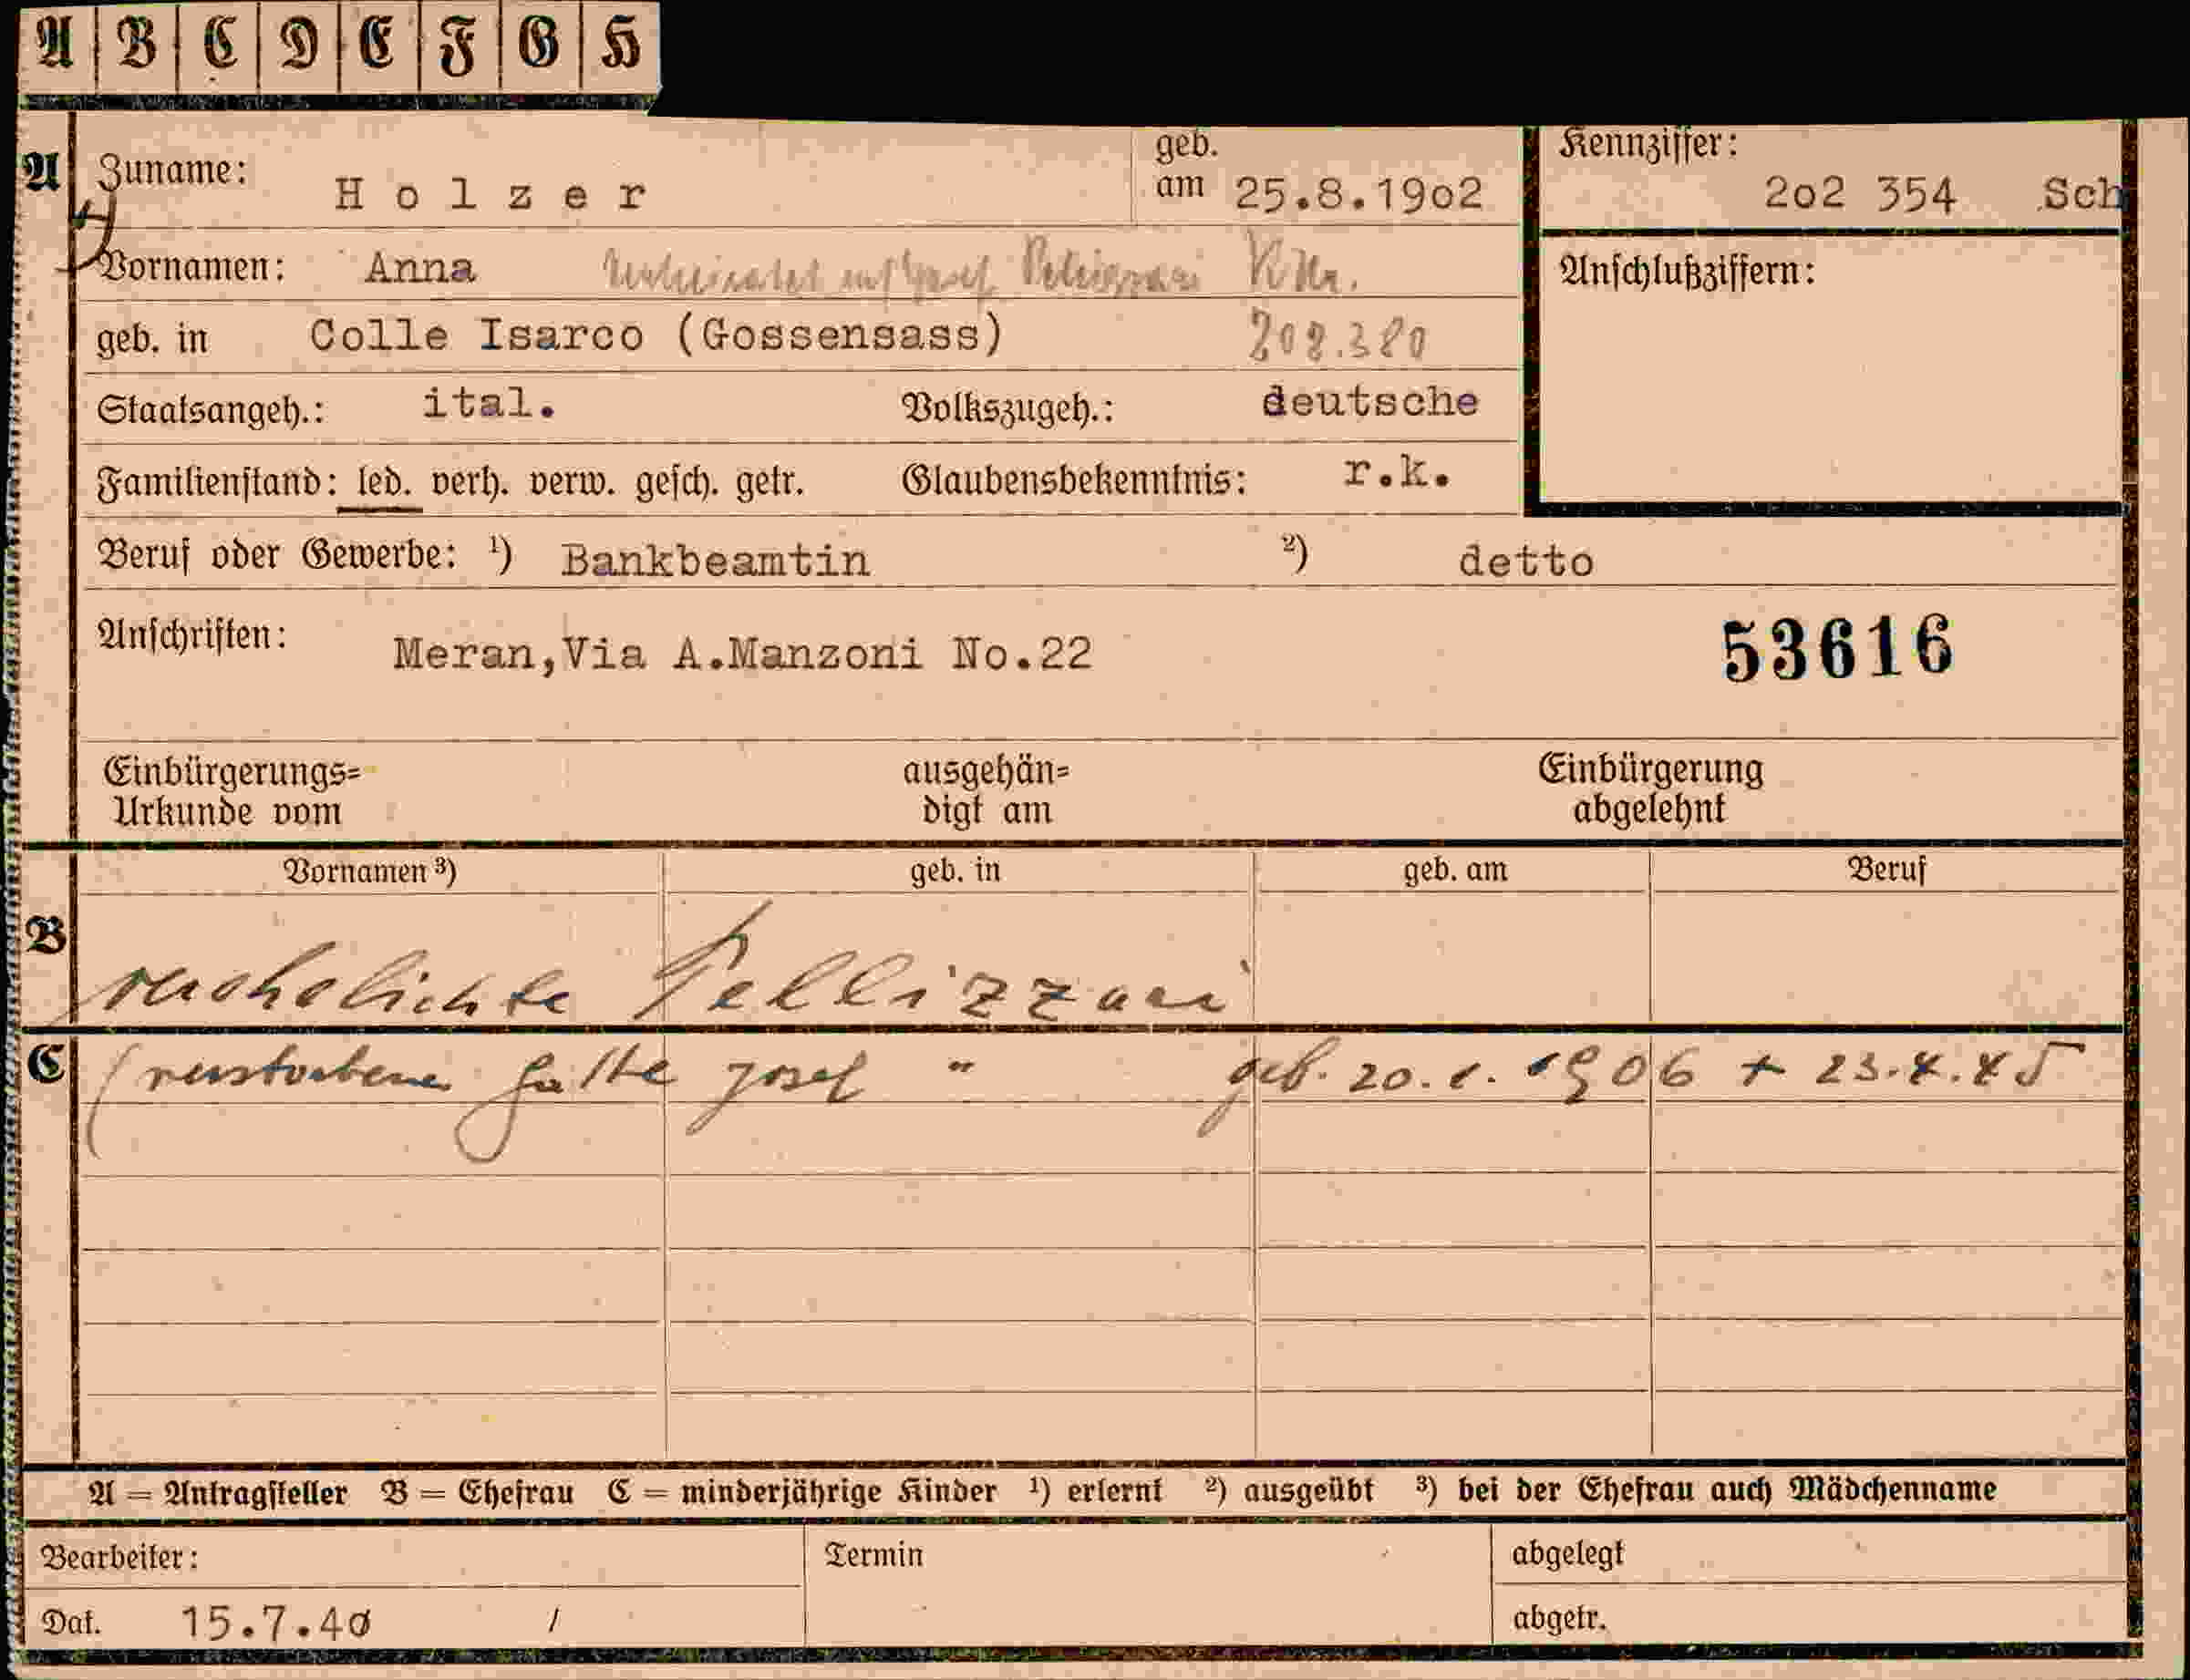 A B C D E F G H
A Zuname: Holzer geb. am 25.8.19o2 Kennziffer: 2o2 354 Sch
Vornamen: Anna Verheiratet mit Josef K.Nr.
Anschlußziffern:
geb. in Colle Isarco (Gossensass) 202.380
Staatsangeh.: ital. Volkszugeh.: deutsche
Familienstand: led. verh. verw. gesch. getr. Glaubensbekenntnis: r.k.
Beruf oder Gewerbe: ¹) Bankbeamtin ²) detto
Anschriften: Meran,Via A.Manzoni No.22 53616
Einbürgerungs= ausgehän= Einbürgerung
Urkunde vom digt am abgelehnt
Vornamen ³) geb. in geb. am Beruf
B verehelichte Pellizzari
C (verstorbener Gatte Josef " geb. 20.1.1906 + 23.4.45
A = Antragsteller B = Ehefrau C = minderjährige Kinder ¹) erlernt ²) ausgeübt ³) bei der Ehefrau auch Mädchenname
Bearbeiter: Termin abgelegt
Dat. 15.7.40 / abgetr.